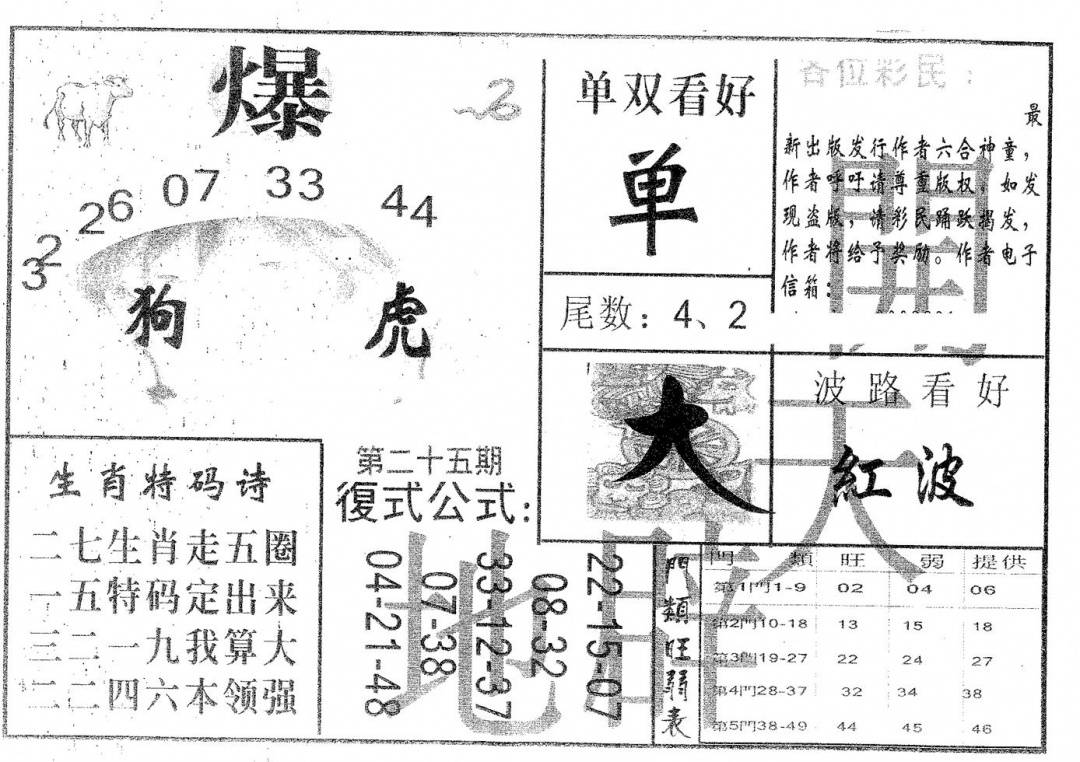 爆
32
26
07
33
44
狗
虎
单双看好
单
尾数：4、2
各位彩民：
最
新出版发行作者六合神童，
作者呼吁请尊重版权，如发
现盗版，请彩民踊跃揭发，
作者将给予奖励。作者电子
信箱：
大
波路看好
紅波
生肖特码诗
二七生肖走五圈
一五特码定出来
三二一九我算大
二二四六本领强
第二十五期
復式公式：
22-15-07
08-32
33-12-37
07-38
04-21-48
門類旺弱表
門類 旺 弱 提供
第1門1-9 02 04 06
第2門10-18 13 15 18
第3門19-27 22 24 27
第4門28-37 32 34 38
第5門38-49 44 45 46